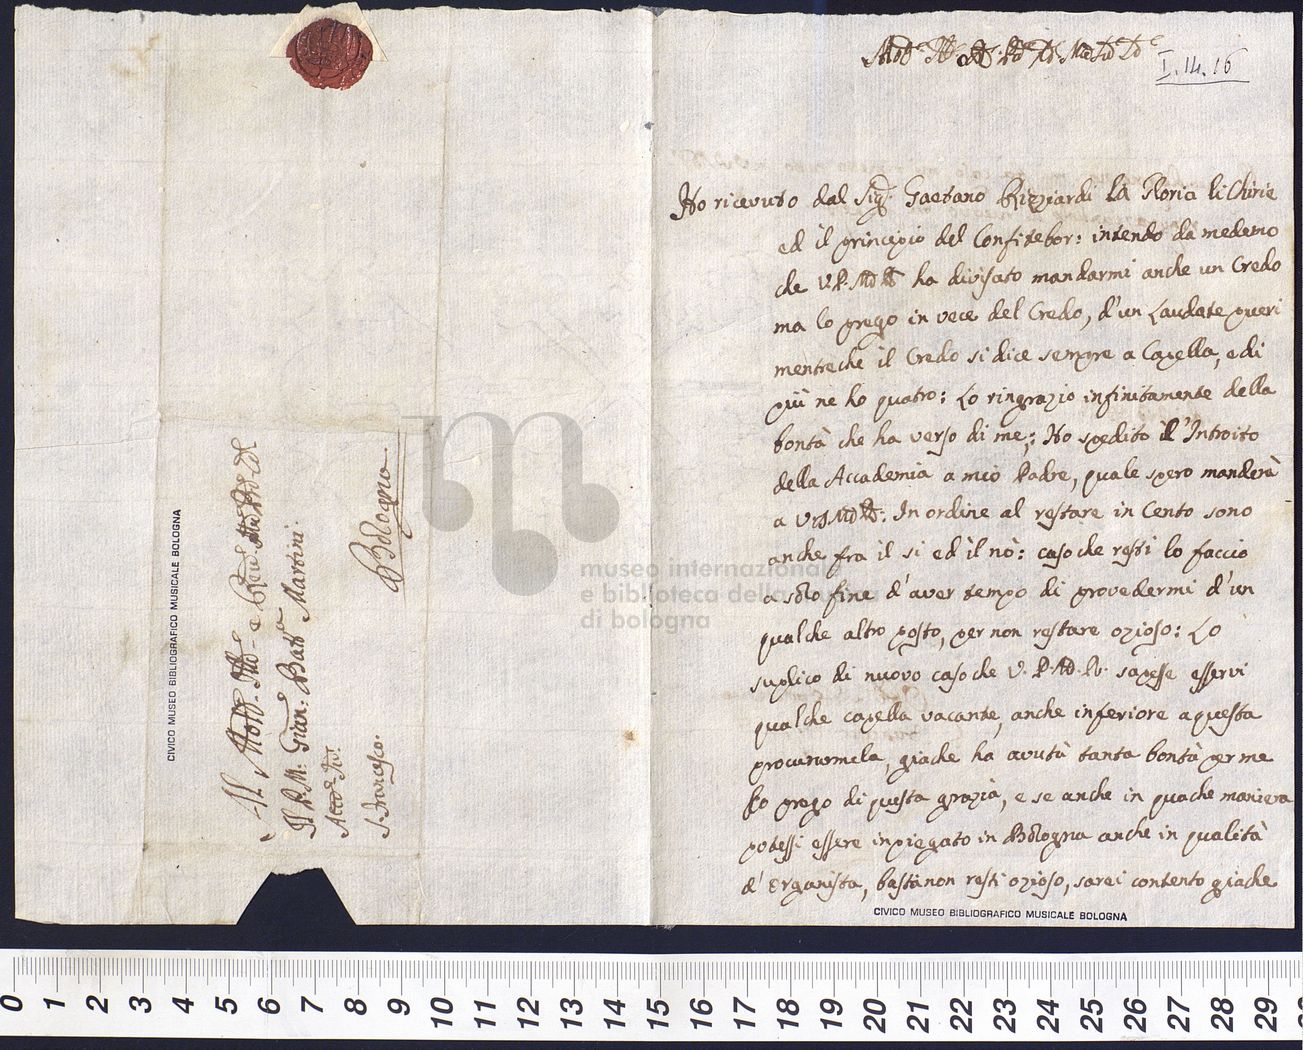 I.14.16
Ho ricevuto dal Sig.r Gaetano Rizziardi la Gloria li Chirie
ed il principio del Confitebor: intendo da medemo
che V.P.M.R. ha divisato mandarmi anche un Credo
ma lo prego in vece del Credo, d'un Laudate pueri
mentreche il Credo si dice sempre a Capella, e di
più nè ho quatro: Lo ringrazio infinitamente della
bontà che ha verso di me; Ho spedito il'Introito
della Accademia a mio Padre, quale spero manderà
a In ordine al restare in Cento sono
anche fra il si ed il nò: caso che resti lo faccio
a solo fine d'aver tempo di provedermi d'un
qualche altro posto, per non restare ozioso: Lo
suplico di nuovo caso che V.P.M.R. sapesse esservi
qualche capella vacante, anche inferiore a questa
procurarmela, giache ha avutà tanta bontà per me
lo prego di questa grazià, e se anche in quache maniera
potessi essere inpiegato in Bologna anche in qualità
d'Organista, bastà non resti ozioso, sarei contento giache
CIVICO MUSEO BIBLIOGRAFICO MUSICALE BOLOGNA
Al Molt.
Il P. M. Gian: Batta Martini.
S. Francesco.
Bologna
CIVICO MUSEO BIBLIOGRAFICO MUSICALE BOLOGNA
museo internazionale
e biblioteca della musica
di bologna
0 1 2 3 4 5 6 7 8 9 10 11 12 13 14 15 16 17 18 19 20 21 22 23 24 25 26 27 28 29